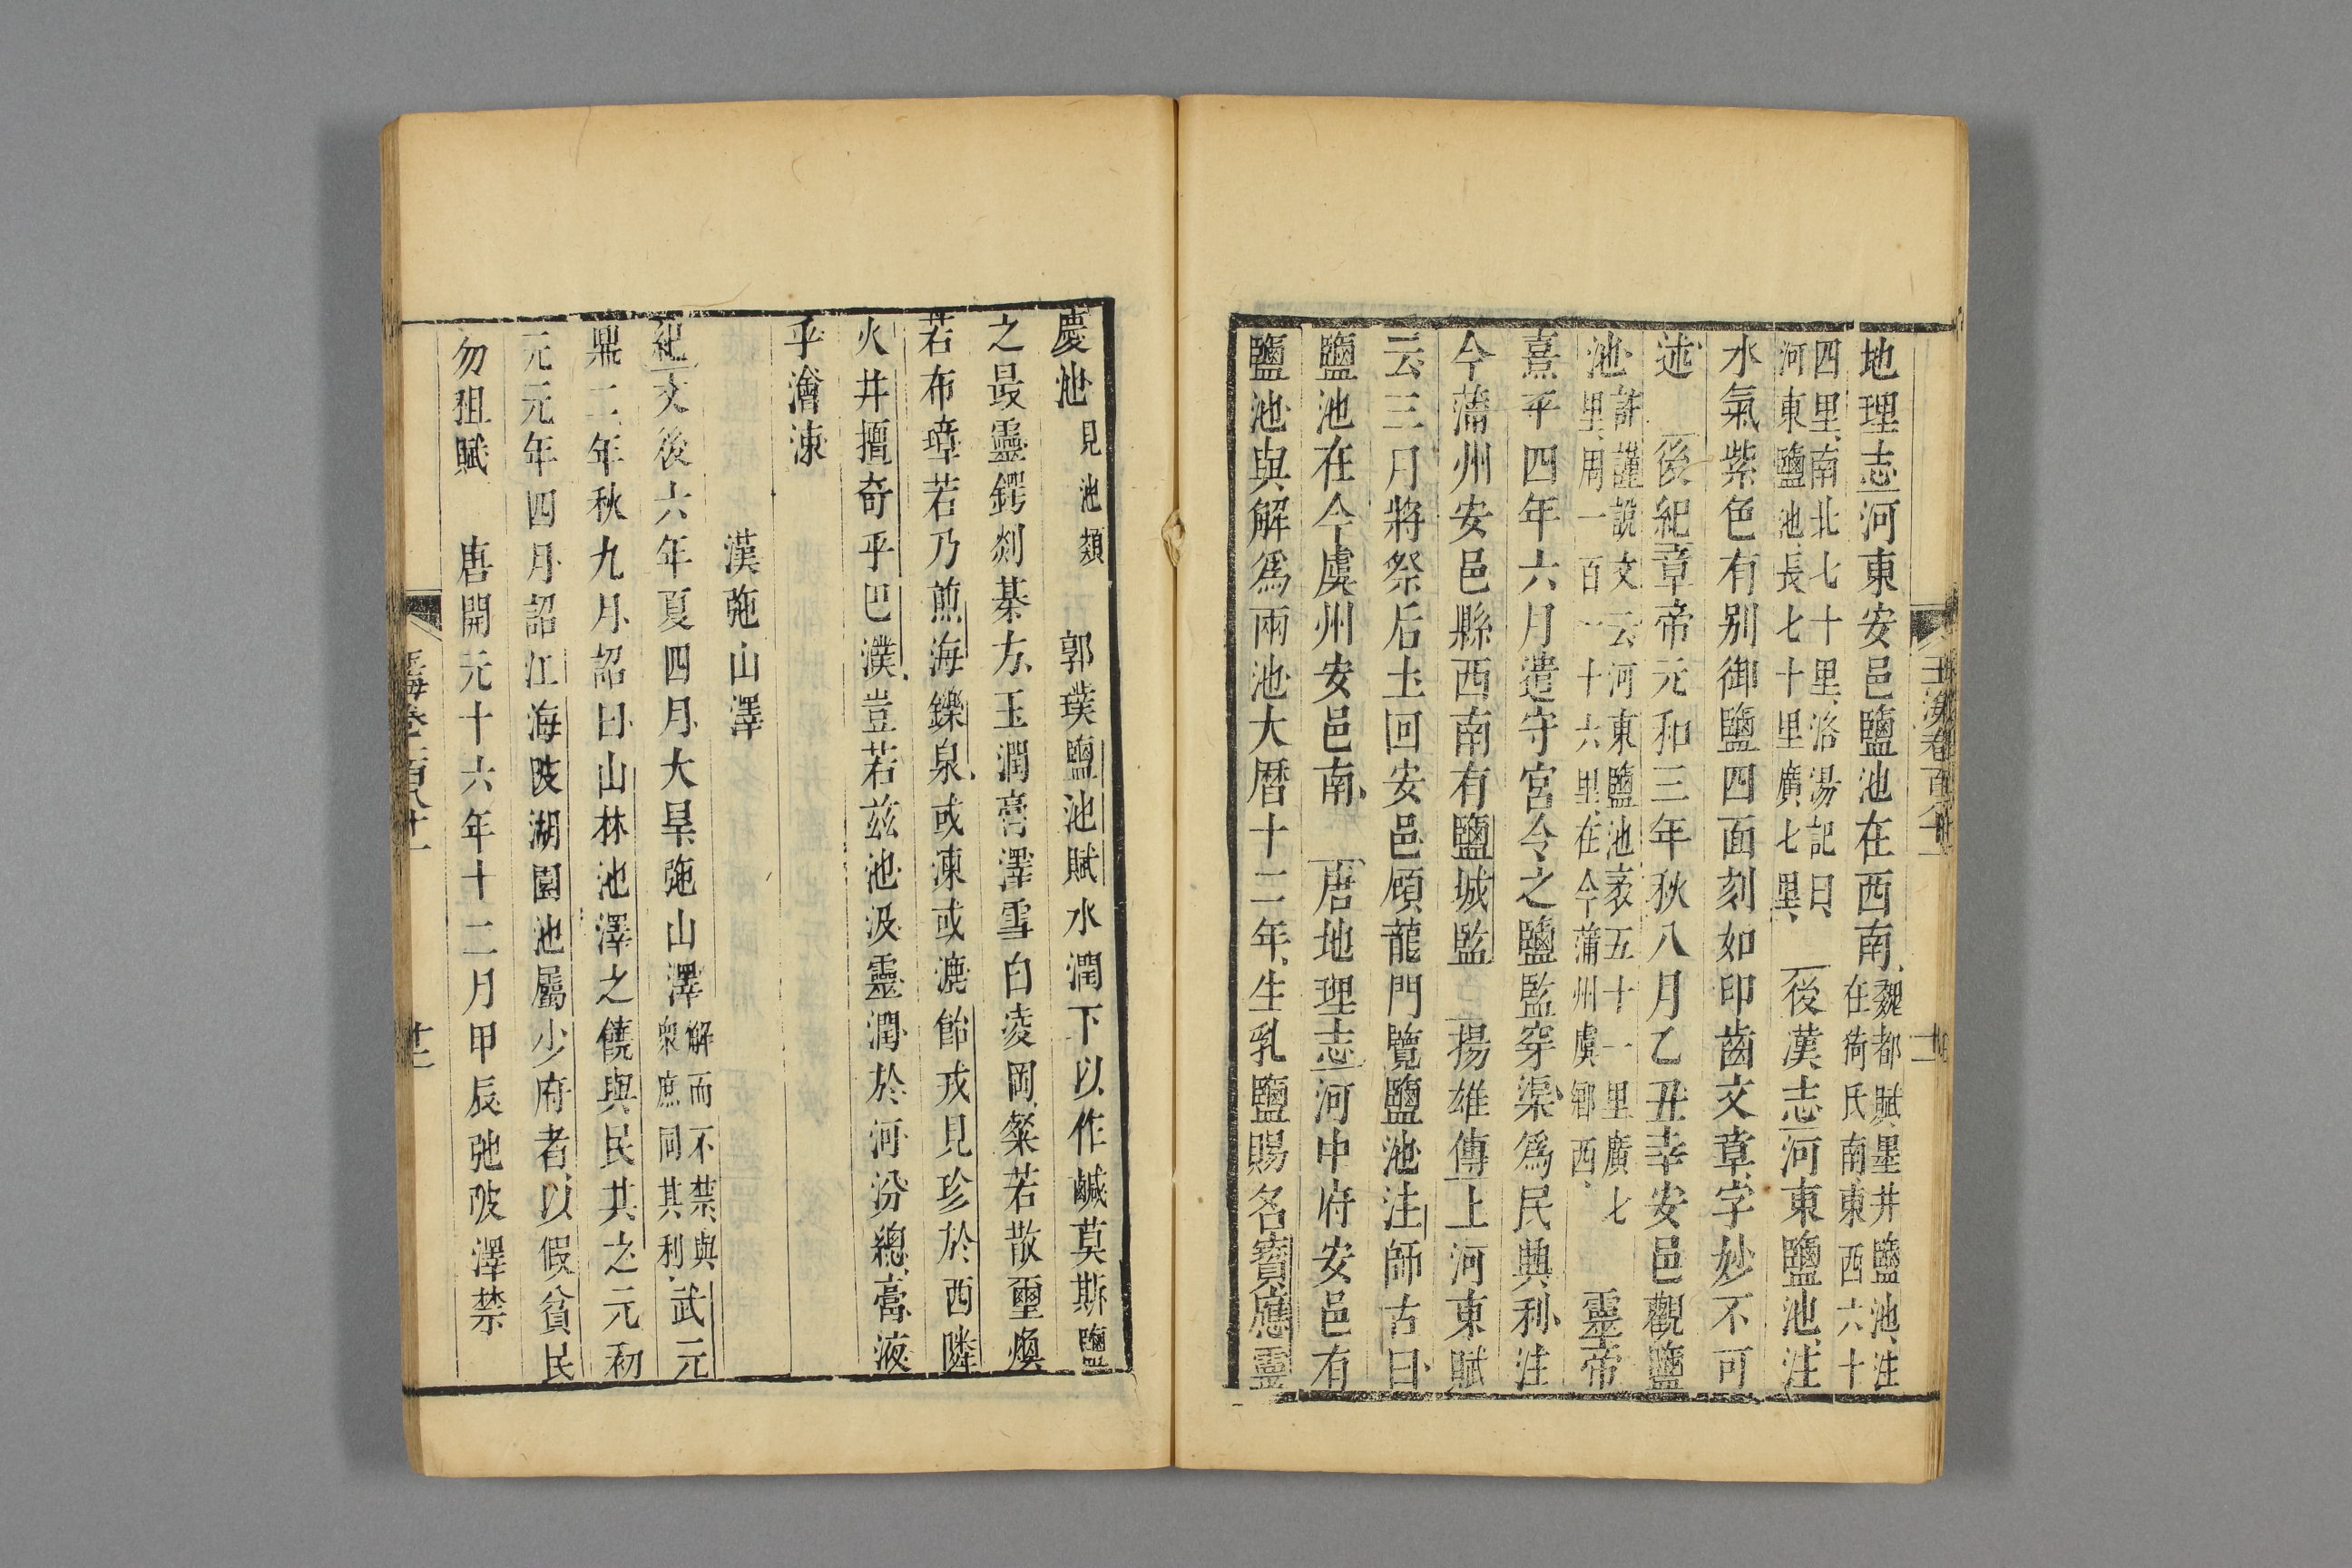 地理志河東安邑鹽池在西南魏都賦墨井鹽池注在猗氏南東西六十
四里南北七十里洛陽記曰河東鹽池長七十里廣七里後漢志河東鹽池注
水氣紫色有別御鹽四面刻如印齒文章字妙不可
述 後紀章帝元和三年秋八月乙丑幸安邑觀鹽
池許謹說文云河東鹽池袤五十一里廣七里周一百一十六里在今蒲州虞鄉西 靈帝
熹平四年六月遣守宮令之鹽監穿渠爲民興利注
今蒲州安邑縣西南有鹽城監 揚雄傳上河東賦
云三月將祭后土回安邑顧龍門覽鹽池注師古曰
鹽池在今虞州安邑南 唐地理志河中府安邑有
鹽池與解爲兩池大曆十二年生乳鹽賜名寶應靈
慶池見池類 郭璞鹽池賦水潤下以作鹹莫斯鹽
之最靈鍔剡棊方玉潤膏澤雪白凌岡粲若散璽煥
若布璋若乃煎海鑠泉或凍或漉飴戎見珍於西隣
火井擅奇乎巴濮豈若兹池汲靈潤於河汾總膏液
乎澮涑
漢弛山澤
紀文後六年夏四月大旱弛山澤解而不禁與衆庶同其利武元
鼎二年秋九月詔曰山林池澤之饒與民共之元初
元元年四月詔江海陂湖園池屬少府者以假貧民
勿租賦 唐開元十六年十二月甲辰弛陂澤禁
玉海卷一百八十一
廿二